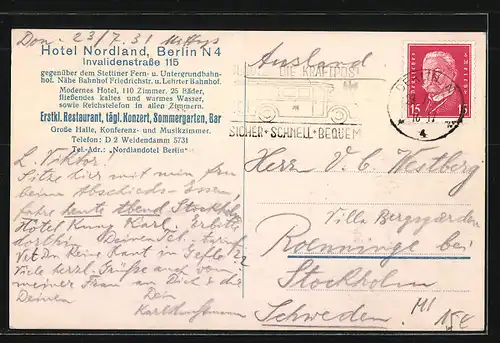 Don. 23/7.31 Mittgs
Hotel Nordland, Berlin N 4
Invalidenstraße 115
gegenüber dem Stettiner Fern- u. Untergrundbahn-
hof. Nähe Bahnhof Friedrichstr. u. Lehrter Bahnhof.
Modernes Hotel, 110 Zimmer, 25 Bäder,
fließendes kaltes und warmes Wasser,
sowie Reichstelefon in allen Zimmern.
Erstkl. Restaurant, tägl. Konzert, Sommergarten, Bar
Große Halle, Konferenz- und Musikzimmer.
Telefon: D 2 Weidendamm 5731
Tel.-Adr.: „Nordlandotel Berlin“
L. Viktor!
Sitze hier mit mein
beim Abschieds-Essen,
fahre heute Abend Stockholm
Hotel Kung Karl. Erbitte
dorthin Deinen
Viele herzl. Grüße auch von
meiner Frau an Dich & die
Deinen
Dein
Ausland
DIE KRAFTPOST
SICHER · SCHNELL · BEQUEM
15 15
4
Herrn V. C. Westberg
Villa Bergsgården
Roenninge bei
Stockholm
Schweden.